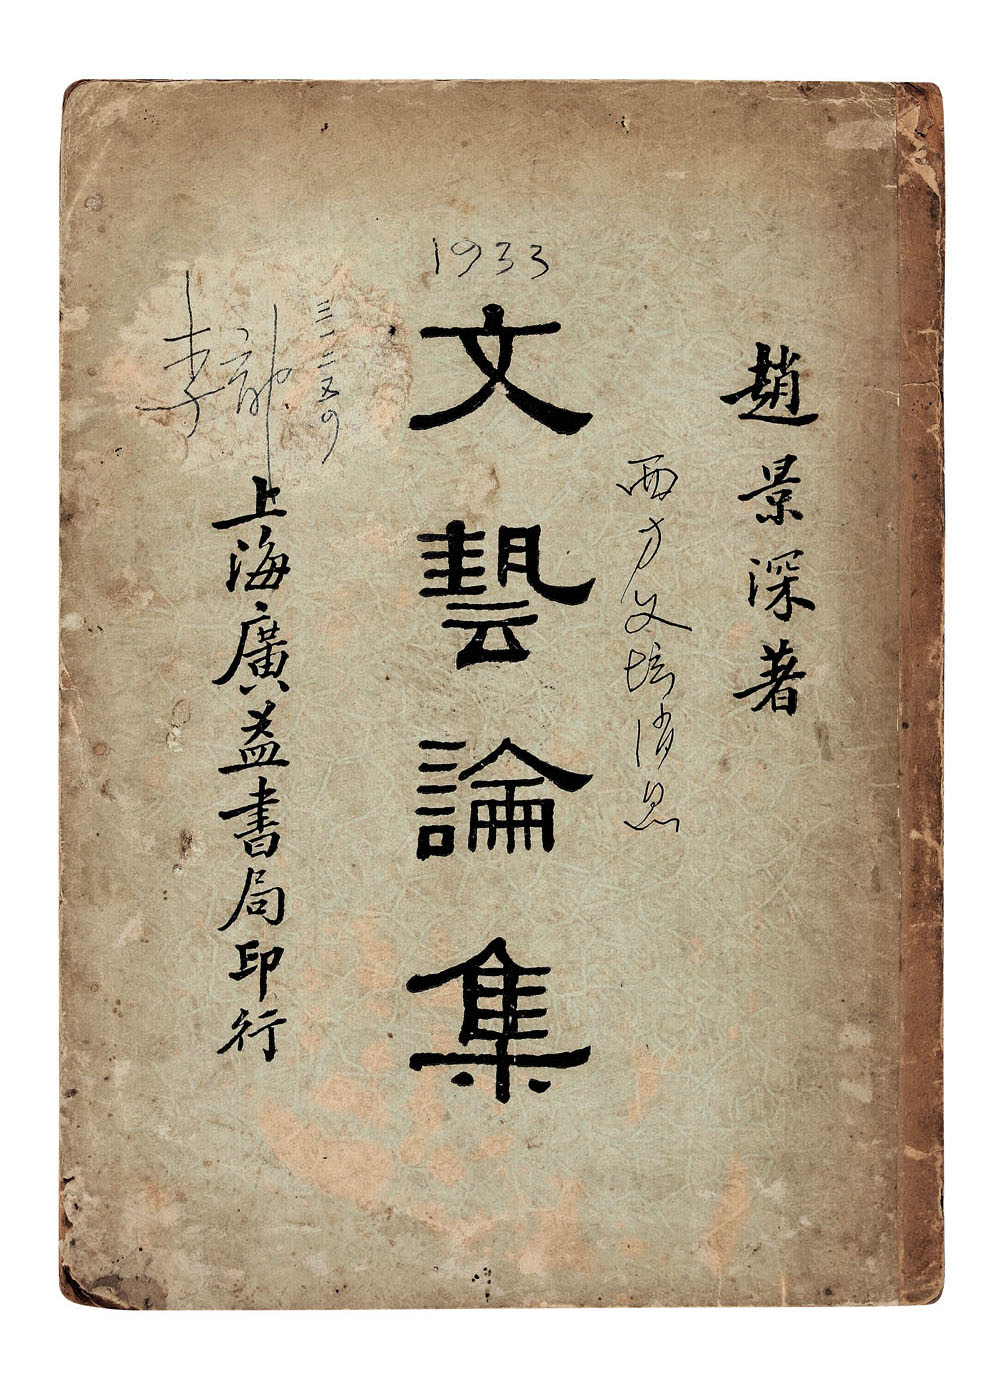 1933
趙景深著
西方文坛消息
文藝論集
李
上海廣益書局印行